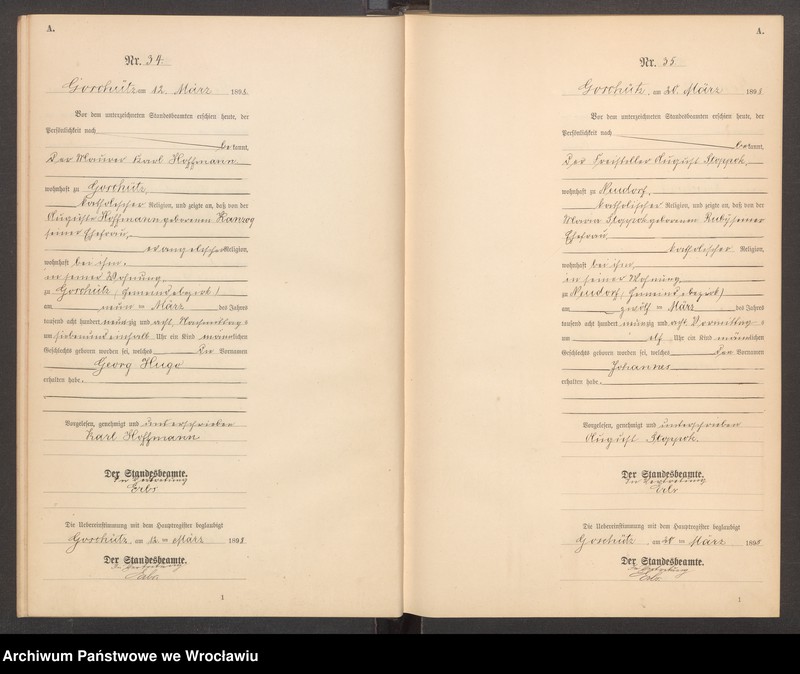 A.
Nr. 34.
Gorchütz am 12. März 1898
Vor dem unterzeichneten Standesbeamten erschien heute, der
Persönlichkeit nach
bekannt,
Der Maurer Karl Hoffmann
wohnhaft zu Gorchütz,
katholischer Religion, und zeigte an, daß von der
Auguste Hoffmann geborenen
seiner Ehefrau,
evangelischer Religion,
wohnhaft bei ihm,
in seiner Wohnung,
zu Gorchütz (Gemeindebezirk)
am neun ten März des Jahres
tausend acht hundert neunzig und acht, Nachmittags
um siebeneinhalb Uhr ein Kind männlichen
Geschlechts geboren worden sei, welches Die Vornamen
Georg Hugo
erhalten habe.
Vorgelesen, genehmigt und unterschrieben
Karl Hoffmann
Der Standesbeamte.
In Vertretung
Die Uebereinstimmung mit dem Hauptregister beglaubigt
Gorchütz, am 12 ten März 1898
Der Standesbeamte.
In Vertretung
1
A.
Nr. 35
Gorchütz, am 20. März 1898
Vor dem unterzeichneten Standesbeamten erschien heute, der
Persönlichkeit nach
bekannt,
Der Freisteller August
wohnhaft zu Neudorf,
katholischer Religion, und zeigte an, daß von der
Maria geborenen seiner
Ehefrau,
katholischer Religion,
wohnhaft bei ihm,
in seiner Wohnung
zu Neudorf, (Gemeindebezirk)
am zwölf ten März des Jahres
tausend acht hundert neunzig und acht Vormittags
um elf Uhr ein Kind männlichen
Geschlechts geboren worden sei, welches Den Vornamen
Johannes
erhalten habe.
Vorgelesen, genehmigt und unterschrieben
August
Der Standesbeamte.
In Vertretung
Die Uebereinstimmung mit dem Hauptregister beglaubigt
Goschütz, am 20 ten März 1898
Der Standesbeamte.
In Vertretung
1
Archiwum Państwowe we Wrocławiu